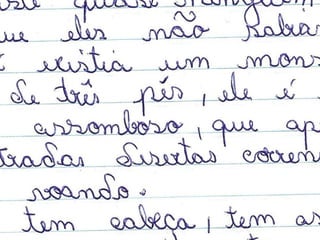 quase ninguém
ue eles não sabia
existia um mons
de três pés, ele é
assomboso, que ap
tradas disertas corren
voando.
tem cabeça, tem as